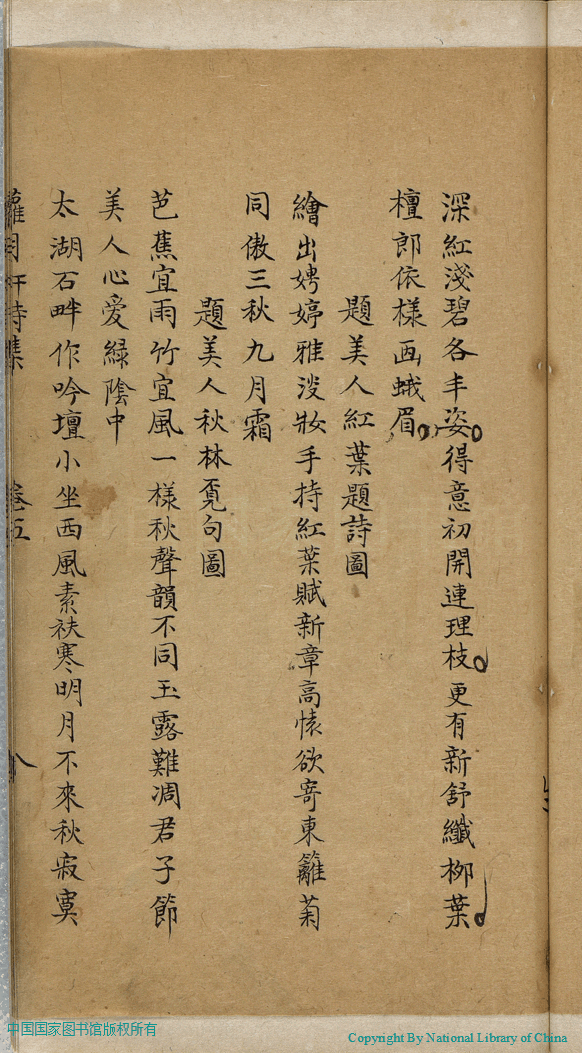 深紅淺碧各丰姿得意初開連理枝更有新舒纖柳葉
檀郎依樣画蛾眉
題美人紅葉題詩圖
繪出娉婷雅淡妝手持紅葉賦新章高懷欲寄東籬菊
同傲三秋九月霜
題美人秋林覔句圖
芭蕉宜雨竹宜風一樣秋聲韻不同玉露難凋君子節
美人心愛綠陰中
太湖石畔作吟壇小坐西風素袂寒明月不來秋寂寞
詩集 卷五 八
中国国家图书馆版权所有
Copyright By National Library of China